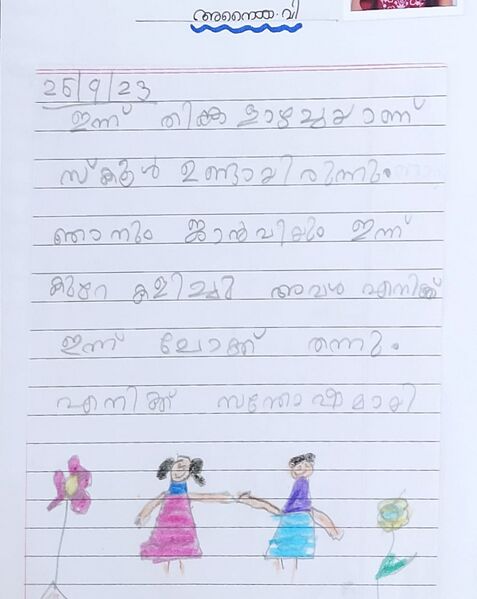 അനൈയ. വി
26/9/23
ഇന്ന് തിങ്കളാഴ്ചയാണ്
സ്കൂൾ ഉണ്ടായിരുന്നു.
ഞാനും ജാൻവിയും ഇന്ന്
കുറേ കളിച്ചു അവൾ എനിക്ക്
ഇന്ന് ലോക്ക് തന്നു.
എനിക്ക് സന്തോഷമായി